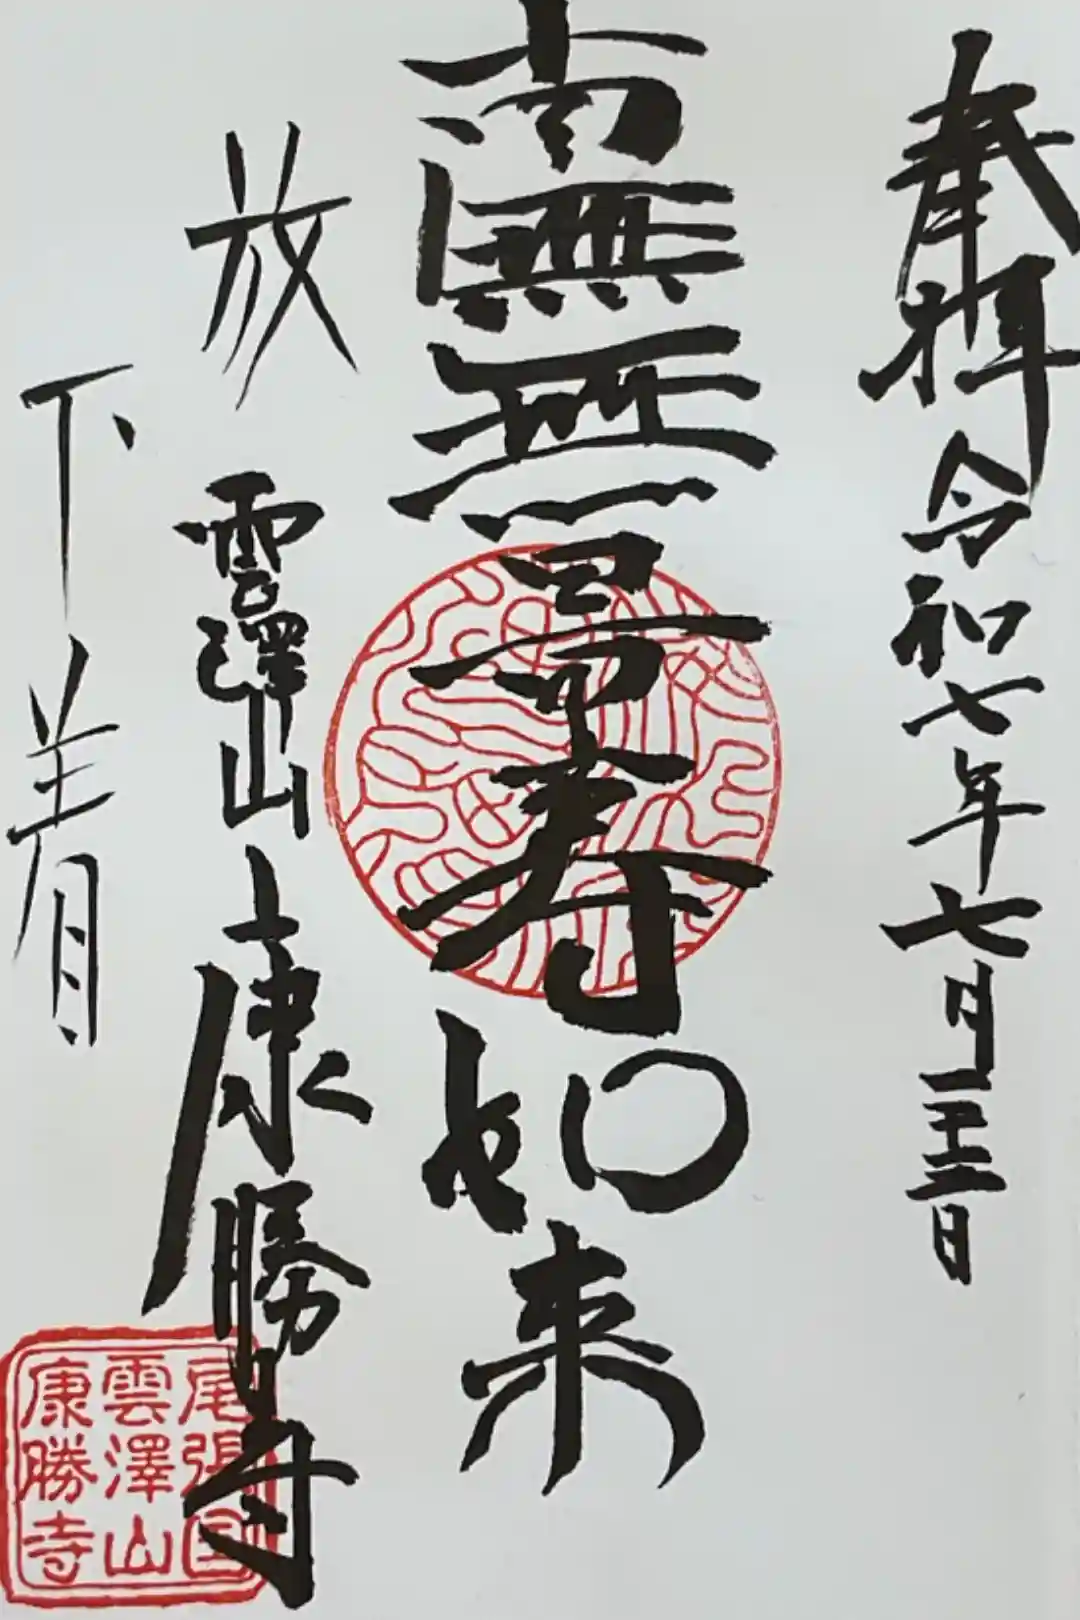 奉拝
令和七年七月二十三日
南無無量寿如来
放下着
雲澤山康勝寺
尾張国
雲澤山
康勝寺